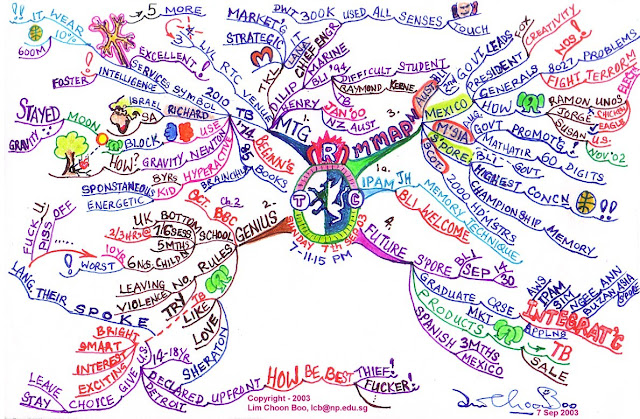 5 MORE
IT WEAR
10%
600M
3
LVL
RTC
VENUE
EXCELLENT!
SERVICES
SYMBOL
2010
TB
FOSTER
INTELLIGENCE
MARKET'G
STRATEGIC
DWT 300K
USED ALL SENSES
TOUCH
CHIEF ENGR
MARINE
SLI '94
TKL
DILIP
HENRY
DIFFICULT STUDENT
RAYMOND KEENE
TB
JAN'00
NZ AUST
1.
MTG
3.
M'MAP
AUSTRALIA
GOVT LEADS
FOX
PRESIDENT
CREATIVITY
NOS!
GENERALS
8027 PROBLEMS
FIGHT TERROR'M
MEXICO
HOW
RAMON UNOS
JORGE
CHICKEN
SUSAN
EAGLE
ELECT
US
NOV'02
M'SIA
GOVT PROMOTE!
MATHATIR
60 DIGITS
S'PORE
BLI
GOVT
HIGHEST CONCN
SCOT
2000 ADM'STRS
CHAMPIONSHIP MEMORY
1a.
IPAM JH
MEMORY TECHNIQUE
BLI WELCOME
STAYED
MOON
GRAVITY
ISRAEL
SA
RICHARD
BLOCK
USE
HOW?
GRAVITY NEWTON
8YRS
HYPERACTIVE
SPONSTANEOUS
KID
ENERGETIC
BRAINCHILD
'74
'95
BEGINN'G
BOOKS
Ch. 2
OCT. BBC
R
T
C
SUNDAY 7th SEP 03
7-11:15 PM
2.
GENIUS
SCHOOL
UK BOTTOM
1/6 SESS
2/3 HRS@
5 MTHS
6 NOS. CHILD'N
10YR
WORST
PISS OFF
FUCK U!
RULES
NO
LEAVING
VIOLENCE
TRY
TB
LIKE
LOVE
SPOKE
LANG THEIR
SHERATON
BRIGHT
SMART
INTEREST
EXCITING
GIVE U.S.
14-18yr
LEAVE
STAY
CHOICE
DECLARED
DETROIT
UPFRONT
HOW BE BEST
THIEF!
FUCKER!
4.
FUTURE
S'PORE
BLI
SEP
14
30
GRADUATE CRSE
AWS
IPAM
SIM
NGEE ANN
BUZAN ASIA
S'PORE
MKT
INTEGRAT'G
PRODUCTS
APPLNS
TB
SALE
SPANISH
3MTHS
MEXICO
Copyright - 2003
Lim Choon Boo, lcb@np.edu.sg
Lim Choo Boo
7 Sep 2003